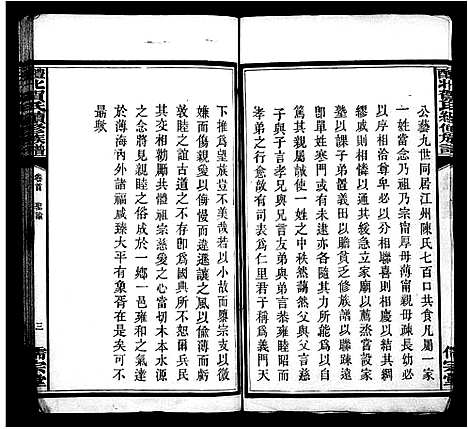 公藝九世同居江州陳氏七百口共食凡屬一家
一姓當念乃祖乃宗甯厚毋薄甯親毋疎長幼必
以序相洽尊卑必以分相聯喜則相慶以結其綢
繆戚則相憐以通其緩急立家廟以薦烝嘗設家
塾以課子弟置義田以贍貧乏修族譜以聯疎遠
即單姓寒門或有未逮亦各隨其力所能為以自
篤其親屬誠使一姓之中秩然藹然父與父言慈
子與子言孝兄與兄言友弟與弟言恭雍睦昭而
孝弟之行愈敦有司表為仁里君子稱為義門天
下推為望族豈不美哉若以小故而隳宗支以微
嫌而傷親愛以侮慢而違遜讓之風以偷薄而虧
敦睦之誼古道之不存即為國典所不恕爾兵民
其交相勸勵共體祖宗慈愛之心常切水木本源
之念將見親睦之俗成於一鄉一邑雍和之氣達
於薄海內外諸福咸臻太平有象胥在是矣可不
勗歟
氏續修族譜
卷首
三